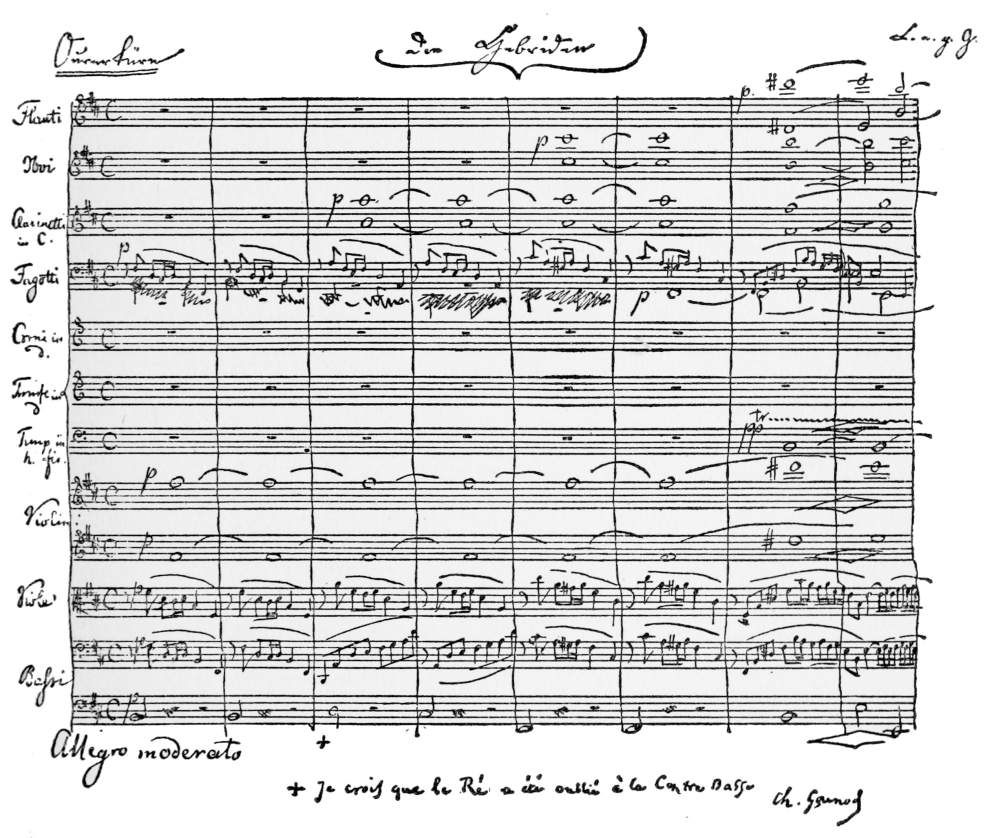 Ouvertüre
Die Hebriden
L. e. g. G.
Flauti
Oboi
Clarinetti
in C.
Fagotti
Corni in
D.
Trombe in
D
Timp in
h. fis.
Violini
Viole
Bassi
p.
p
p
p
p
tr
pp
p
p
Allegro moderato
+
+ Je crois que le Ré a été oublié à la Contre Basse
Ch. Gounod